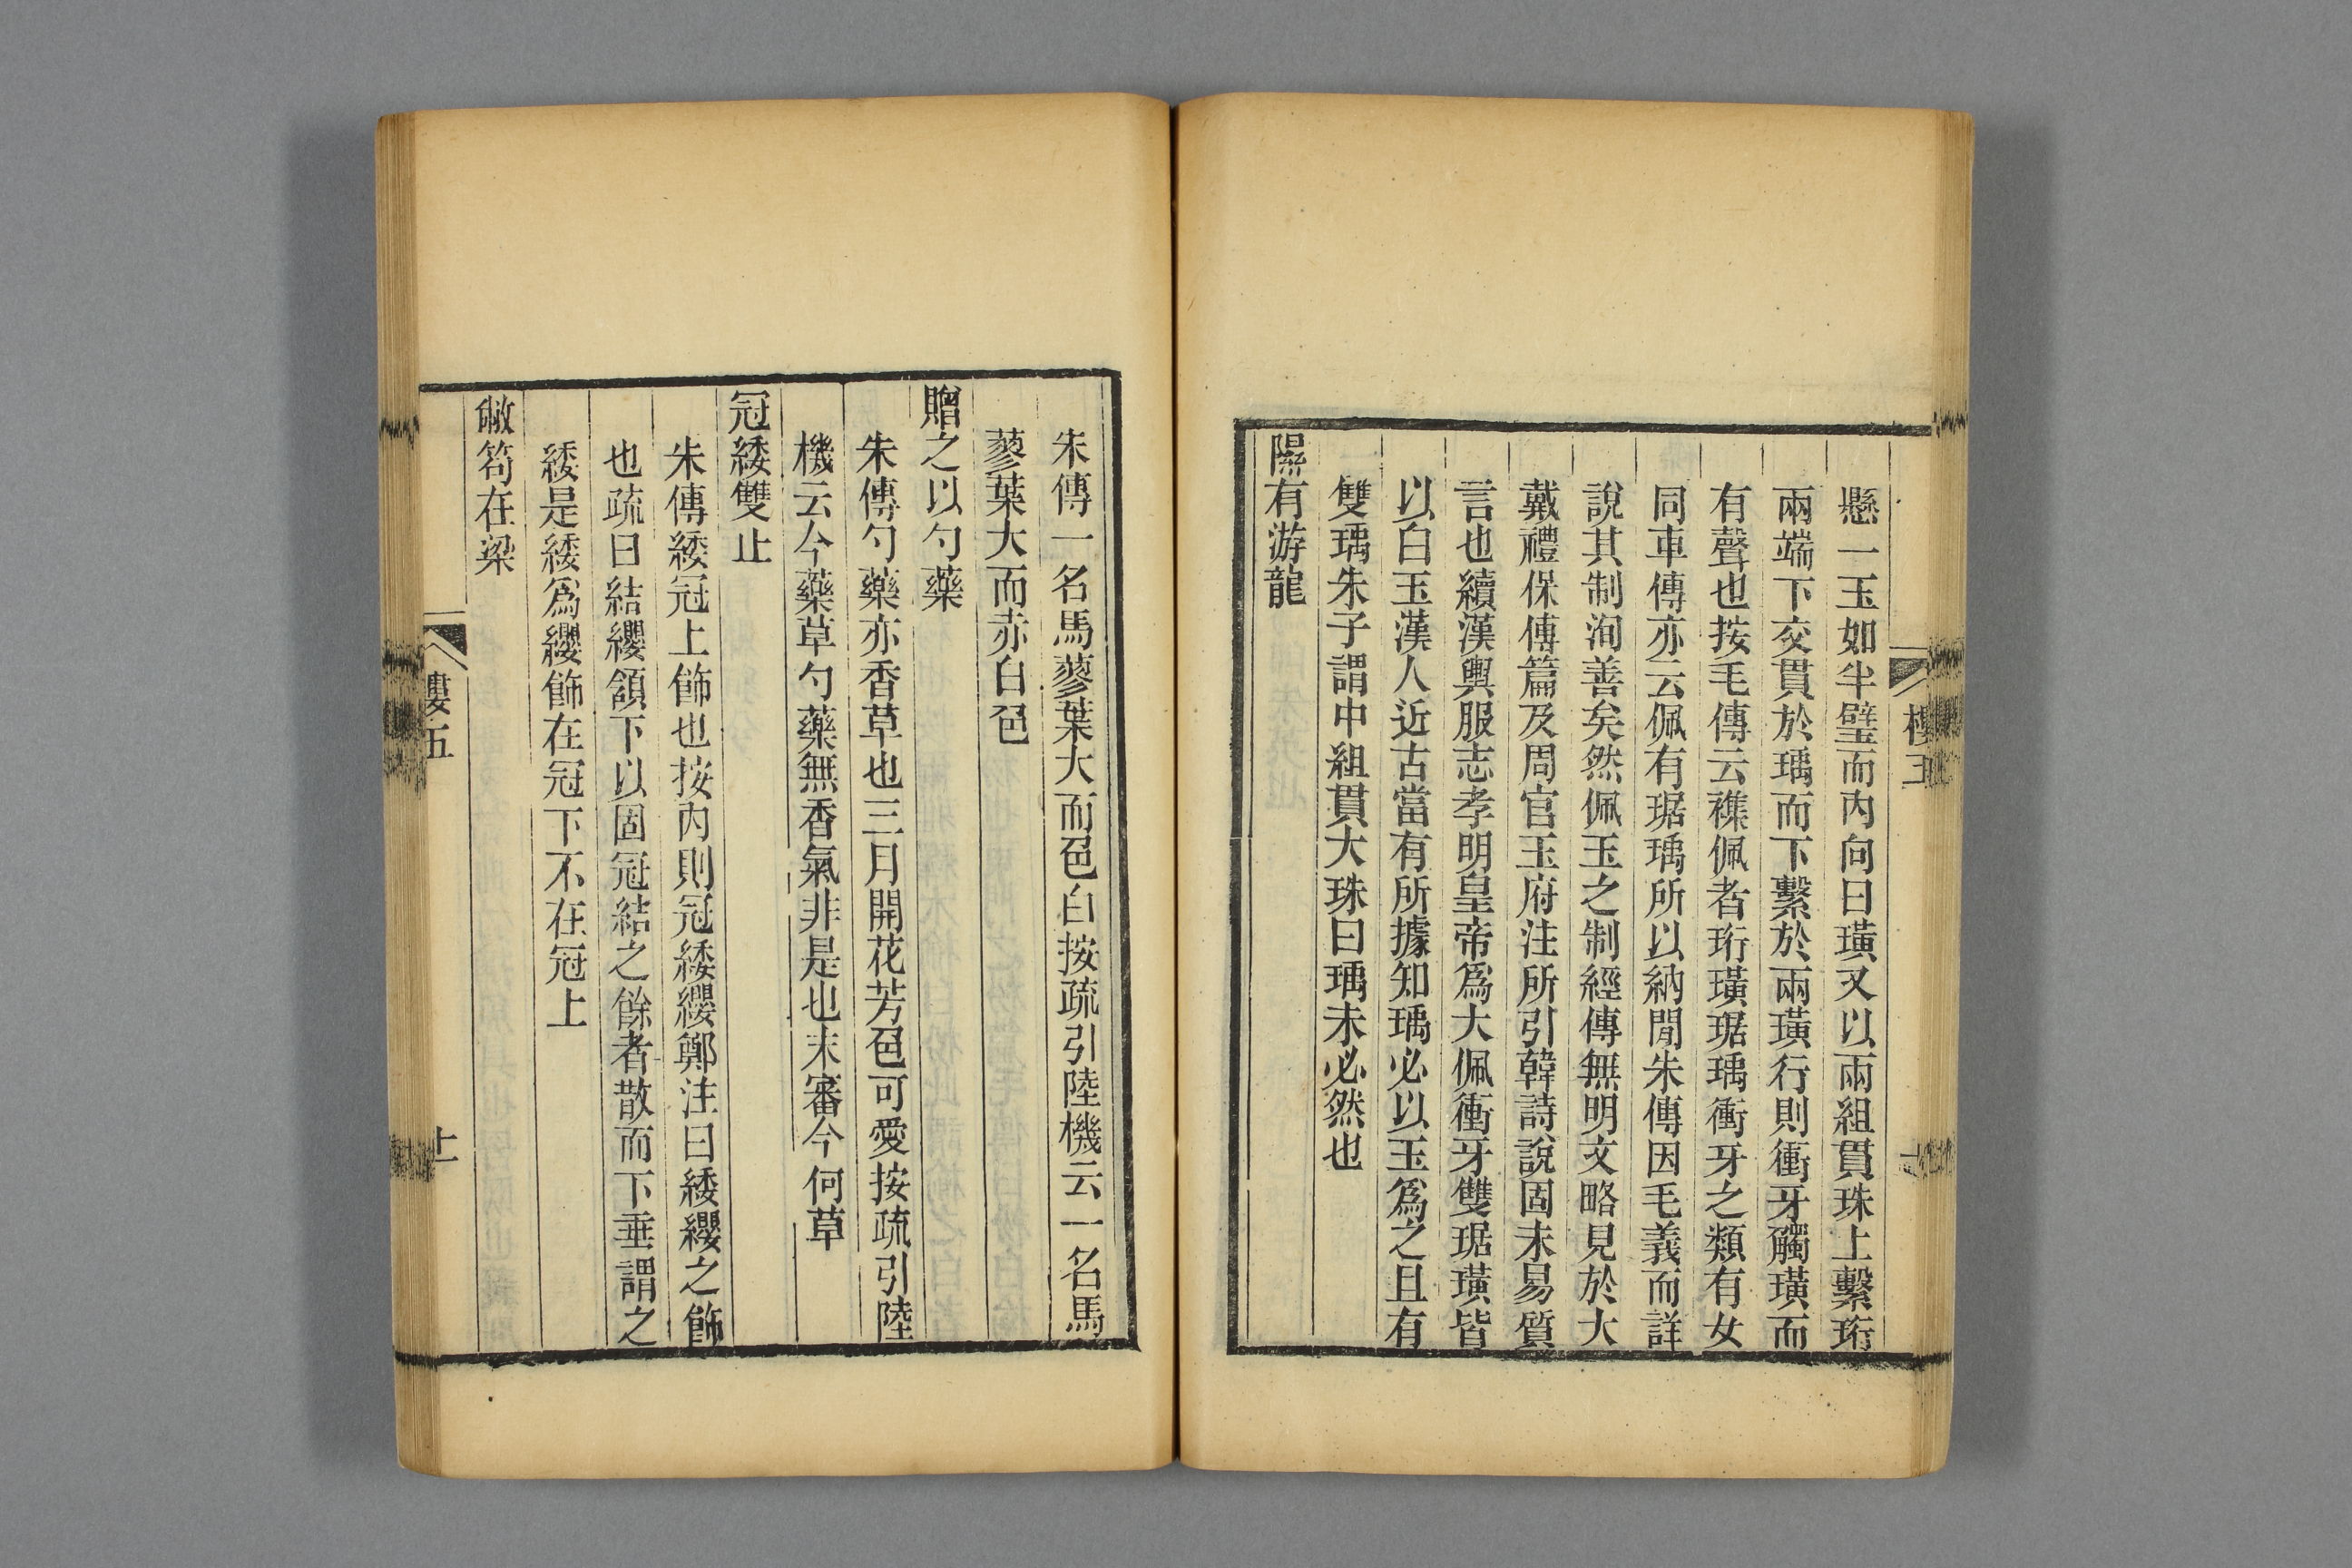 懸一玉如半璧而內向曰璜又以兩組貫珠上繫珩
兩端下交貫於瑀而下繫於兩璜行則衝牙觸璜而
有聲也按毛傳云襍佩者珩璜琚瑀衝牙之類有女
同車傳亦云佩有琚瑀所以納閒朱傳因毛義而詳
說其制洵善矣然佩玉之制經傳無明文略見於大
戴禮保傅篇及周官玉府注所引韓詩說固未易質
言也續漢輿服志孝明皇帝爲大佩衝牙雙琚璜皆
以白玉漢人近古當有所據知瑀必以玉爲之且有
雙瑀朱子謂中組貫大珠曰瑀未必然也
隰有游龍
朱傳一名馬蓼葉大而色白按疏引陸機云一名馬
蓼葉大而赤白色
贈之以勺藥
朱傳勺藥亦香草也三月開花芳色可愛按疏引陸
機云今藥草勺藥無香氣非是也未審今何草
冠緌雙止
朱傳緌冠上飾也按內則冠緌纓鄭注曰緌纓之飾
也疏曰結纓頷下以固冠結之餘者散而下垂謂之
緌是緌爲纓飾在冠下不在冠上
敝笱在梁
五